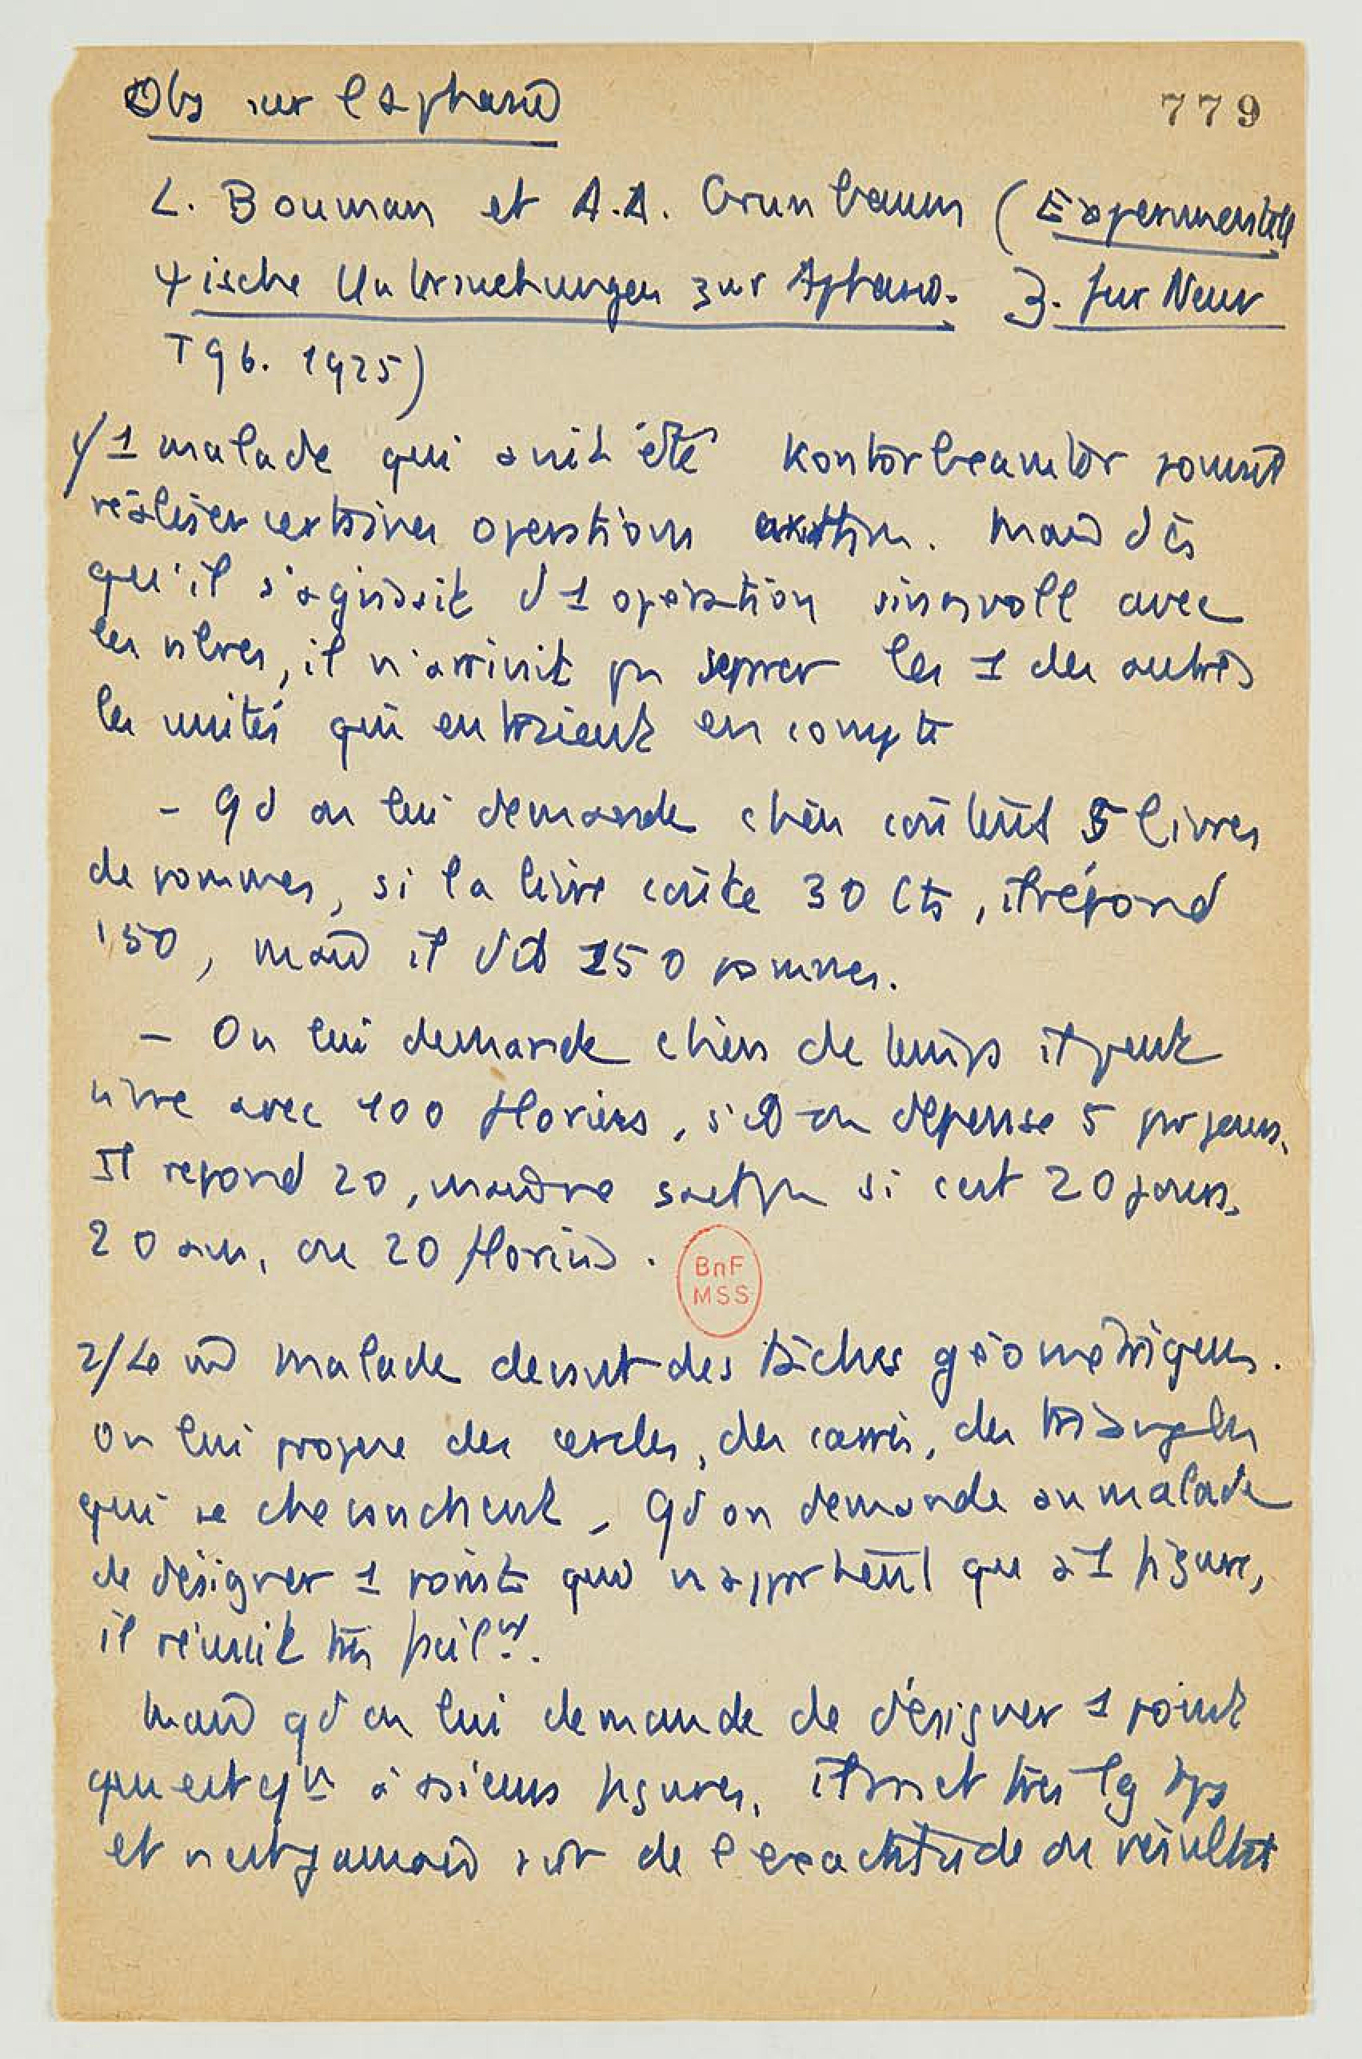 Obs sur l'aphasie
779
L. Bouman et A.A. Grunbaum (Experimentell
ψische Untersuchungen zur Aphasie. Z. fur Neur
T 96. 1925)
1/ 1 malade qui avait été Kontorbeamter
réaliser certaines operations. Mais dès
qu'il s'agissait d'1 opération sinnvoll avec
il n'arrivait pas separer les 1 des autres
les unités qui entraient en compte
- Qd on lui demande cbien coûtent 5 livres
de pommes, si la livre coûte 30 cts, il répond
150, mais il dit 150 pommes.
- On lui demande cbien de temps il peut
vivre avec 100 florins, si on dépense 5 par jours.
Il repond 20, mais ne sait pas si c'est 20 jours,
20 ans, ou 20 florins.
BnF
MSS
2/ Le m̂ malade devant des tâches géométriques.
On lui propose des cercles, des carrés, des triangles
qui se chevauchent. Qd on demande au malade
de désigner 1 point qui n'appartient que à 1 figure,
il réussit très facilt.
Mais qd on lui demande de désigner 1 point
qui est à figures, il met très lg tps
et n'est jamais sûr de l'exactitude du résultat